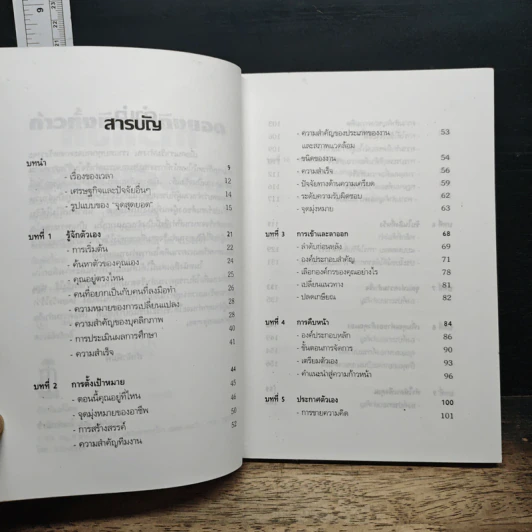 สารบัญ
บทนำ 9
- เรื่องของเวลา 12
- เศรษฐกิจและปัจจัยอื่นๆ 14
- รูปแบบของ "จุดสุดยอด" 15
บทที่ 1 รู้จักตัวเอง 21
- การเริ่มต้น 22
- ค้นหาตัวของคุณเอง 24
- คุณอยู่ตรงไหน 26
- คนที่อยากเป็นกับคนที่ลงมือทำ
- ความหมายของการเปลี่ยนแปลง
- ความสำคัญของบุคลิกภาพ
- การประเมินผลการศึกษา
- ความสำเร็จ 41
บทที่ 2 การตั้งเป้าหมาย 44
- ตอนนี้คุณอยู่ที่ไหน
- จุดมุ่งหมายของอาชีพ
- การสร้างสรรค์ 50
- ความสำคัญทีมงาน 52
- ความสำคัญของประเภทของงาน 53
และสภาพแวดล้อม
- ชนิดของงาน 54
- ความสำเร็จ 56
- ปัจจัยทางด้านความเครียด 59
- ระดับความรับผิดชอบ 62
- จุดมุ่งหมาย 63
บทที่ 3 การเข้าและลาออก 68
- ลำดับก่อนหลัง 69
- องค์ประกอบสำคัญ 71
- เลือกองค์การของคุณอย่างไร 78
- เปลี่ยนแนวทาง 81
- ปลดเกษียณ 82
บทที่ 4 การคืบหน้า 84
- องค์ประกอบหลัก 86
- ขั้นตอนการจัดการ 90
- เตรียมตัวเอง 93
- คำแนะนำสู่ความก้าวหน้า 96
บทที่ 5 ประกาศตัวเอง 100
- การขายความคิด 101